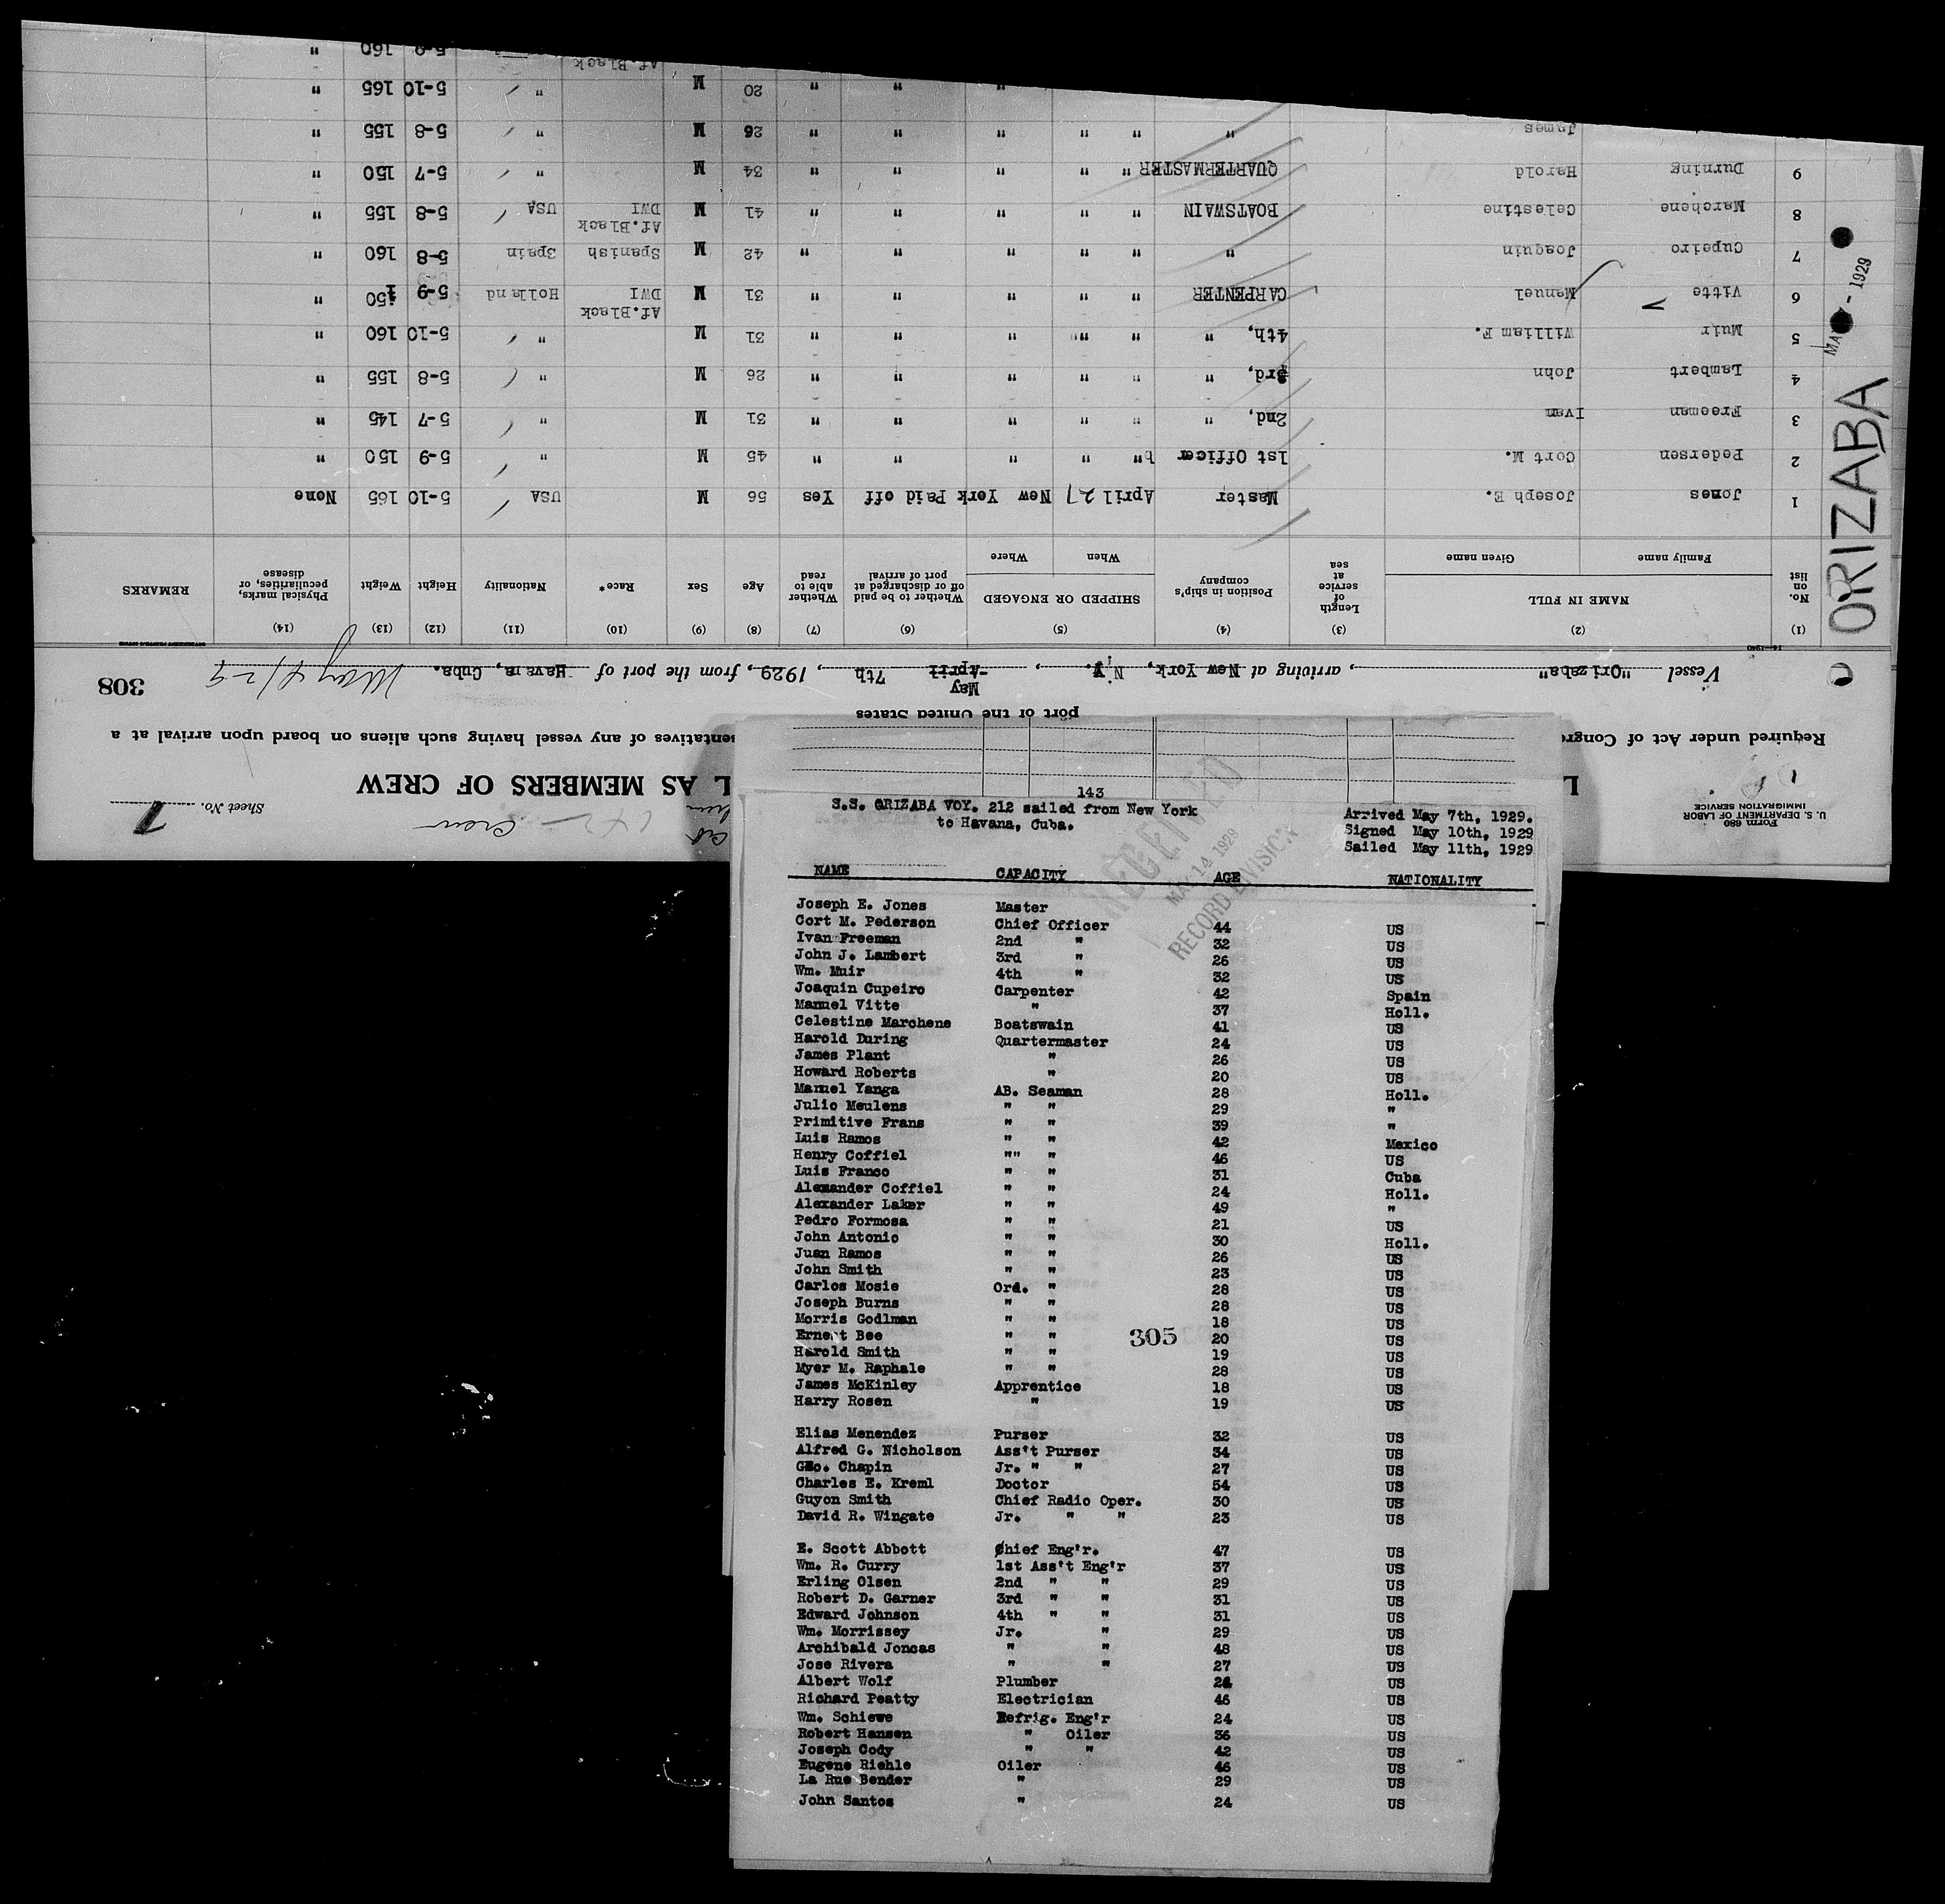 143
S.S. ORIZABA VOY. 212 sailed from New York
to Havana, Cuba.
Arrived May 7th, 1929.
Signed May 10th, 1929
Sailed May 11th, 1929
RECEIVED
MAY 14 1929
RECORD DIVISION
NAME CAPACITY AGE NATIONALITY
Joseph E. Jones Master
Cort M. Pederson Chief Officer 44 US
Ivan Freeman 2nd " 32 US
John J. Lambert 3rd " 26 US
Wm. Muir 4th " 32 US
Joaquin Cupeiro Carpenter 42 Spain
Manuel Vitte " 37 Holl.
Celestine Marchene Boatswain 41 US
Harold During Quartermaster 24 US
James Plant " 26 US
Howard Roberts " 20 US
Manuel Yanga AB. Seaman 28 Holl.
Julio Meulens " " 29 "
Primitive Frans " " 39 "
Luis Ramos " " 42 Mexico
Henry Coffiel "" " 46 US
Luis Franco " " 31 Cuba
Alexander Coffiel " " 24 Holl.
Alexander Laker " " 49 "
Pedro Formosa " " 21 US
John Antonio " " 30 Holl.
Juan Ramos " " 26 US
John Smith " " 23 US
Carlos Mosie Ord. " 28 US
Joseph Burns " " 28 US
Morris Godlman " " 18 US
Ernest Bee " " 20 US
305
Harold Smith " " 19 US
Myer M. Raphale " " 28 US
James McKinley Apprentice 18 US
Harry Rosen " 19 US
Elias Menendez Purser 32 US
Alfred G. Nicholson Ass't Purser 34 US
Geo. Chapin Jr. " " 27 US
Charles E. Kreml Doctor 54 US
Guyon Smith Chief Radio Oper. 30 US
David R. Wingate Jr. " " 23 US
E. Scott Abbott Chief Eng'r. 47 US
Wm. R. Curry 1st Ass't Eng'r 37 US
Erling Olsen 2nd " " 29 US
Robert D. Garner 3rd " " 31 US
Edward Johnson 4th " " 31 US
Wm. Morrissey Jr. " 29 US
Archibald Joncas " " 48 US
Jose Rivera " " 27 US
Albert Wolf Plumber US
Richard Peatty Electrician 46 US
Wm. Schiewe Refrig. Eng'r 24 US
Robert Hansen " Oiler 36 US
Joseph Cody " " 42 US
Eugene Riehle Oiler 46 US
La Rue Bender " 29 US
John Santos " 24 US
Form 680
U. S. DEPARTMENT OF LABOR
IMMIGRATION SERVICE
Sheet No. 1
L AS MEMBERS OF CREW
Required under Act of Congr
sentatives of any vessel having such aliens on board upon arrival at a
port of the United States
Vessel "Orizaba", arriving at New York, N.Y., April May 7th, 1929, from the port of Havana, Cuba.
308
(1) (2) (3) (4) (5) (6) (7) (8) (9) (10) (11) (12) (13) (14)
No. on list NAME IN FULL Length of service at sea Position in ship's company SHIPPED OR ENGAGED Whether to be paid off or discharged at port of arrival Whether able to read Age Sex Race* Nationality Height Weight Physical marks, peculiarities, or disease REMARKS
Family name Given name When Where
1 Jones Joseph E. Master April 27 New York Paid off Yes 56 M USA 5-10 165 None
2 Pedersen Cort M. 1st Officer " " " " " 45 M " 5-9 150 "
3 Freeman Ivan 2nd, " " " " " " 31 M " 5-7 145 "
4 Lambert John 3rd, " " " " " " 26 M " 5-8 155 "
5 Muir William F. 4th, " " " " " " 31 M " 5-10 160 "
6 Vitte Manuel CARPENTER " " " " " 31 M Af.Black DWI Holland 5-9 150 "
7 Cupeiro Joaquin " " " " " " 42 M Spanish Spain 5-8 160 "
8 Marchene Celestine BOATSWAIN " " " " " 41 M Af.Black DWI USA 5-8 155 "
9 Durning Harold QUARTERMASTER " " " " " 34 M " 5-7 150 "
James " " " " " " 26 M " 5-8 155 "
" " " " 20 M " 5-10 165 "
Af.Black 160 "
ORIZABA
1929